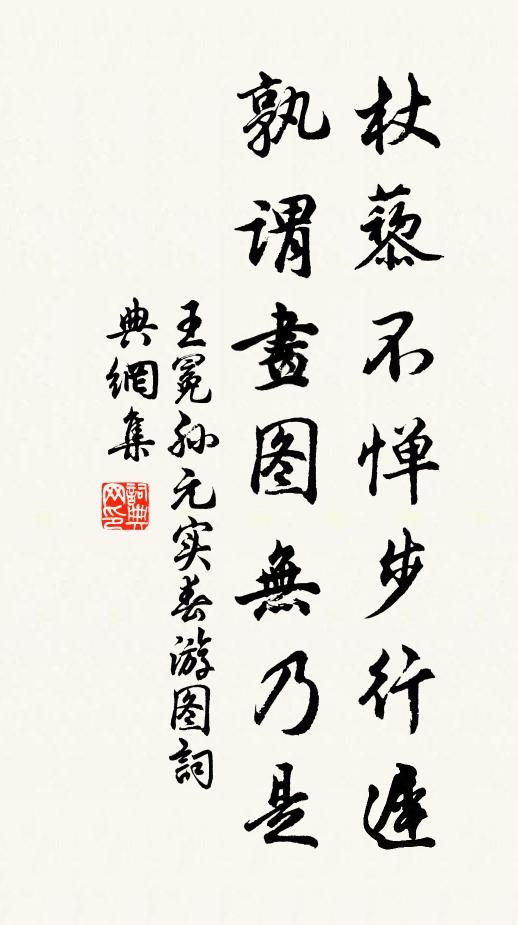 杖藜不惮步行遲
孰謂畫图無乃是
王冕孙元实春游图詞
典網集
詞典网印